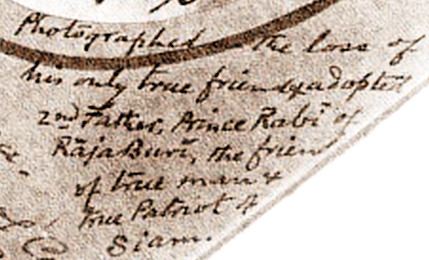 Photographed the loss of
his only true friend & adopted
2nd Father, Prince Rabi of
Rāja Buri, the friend
of true man &
true Patriot of
Siam.